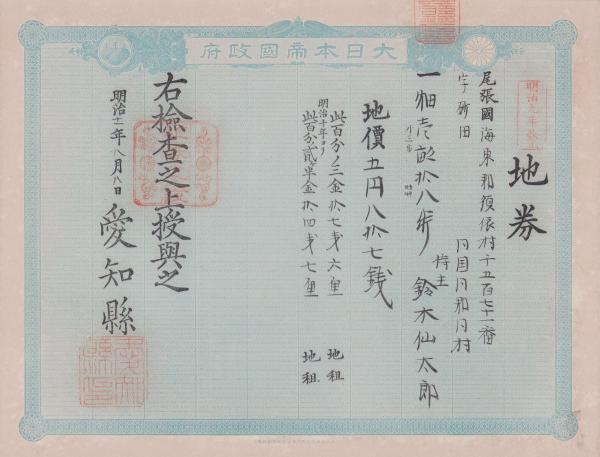 大日本帝國政府
地券
尾張國海東郡須依村千五百七十一番
字 田
同国同郡同村
持主 鈴木仙太郎
一畑壱畝拾八歩
地價五円八拾七銭
此百分ノ三金拾七銭六厘 地租
明治十年ヨリ
此百分ノ貳半金拾四銭七厘 地租
右檢査之上授與之
明治十二年八月八日
愛知縣